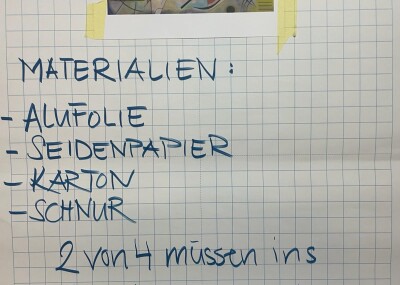 MATERIALIEN:
- ALUFOLIE
- SEIDENPAPIER
- KARTON
- SCHNUR
2 von 4 müssen ins